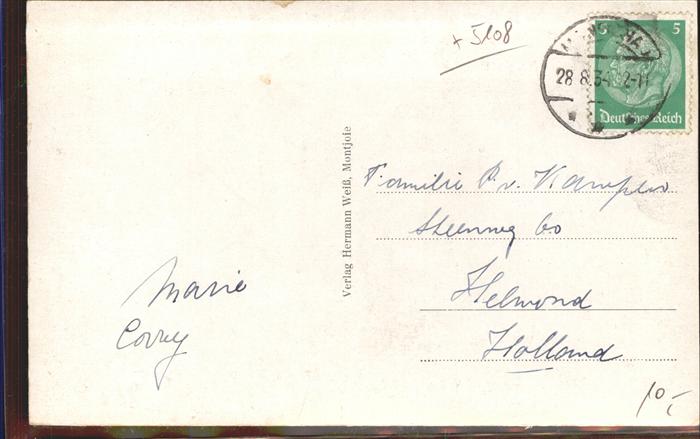 + 5108
5 5
28.8.34. 2-11
Deutsches Reich
Verlag Hermann Weiß, Montjoie
Familie P. v. Kampen
Steenweg 60
Helmond
Holland
Marie
Corry
10,-